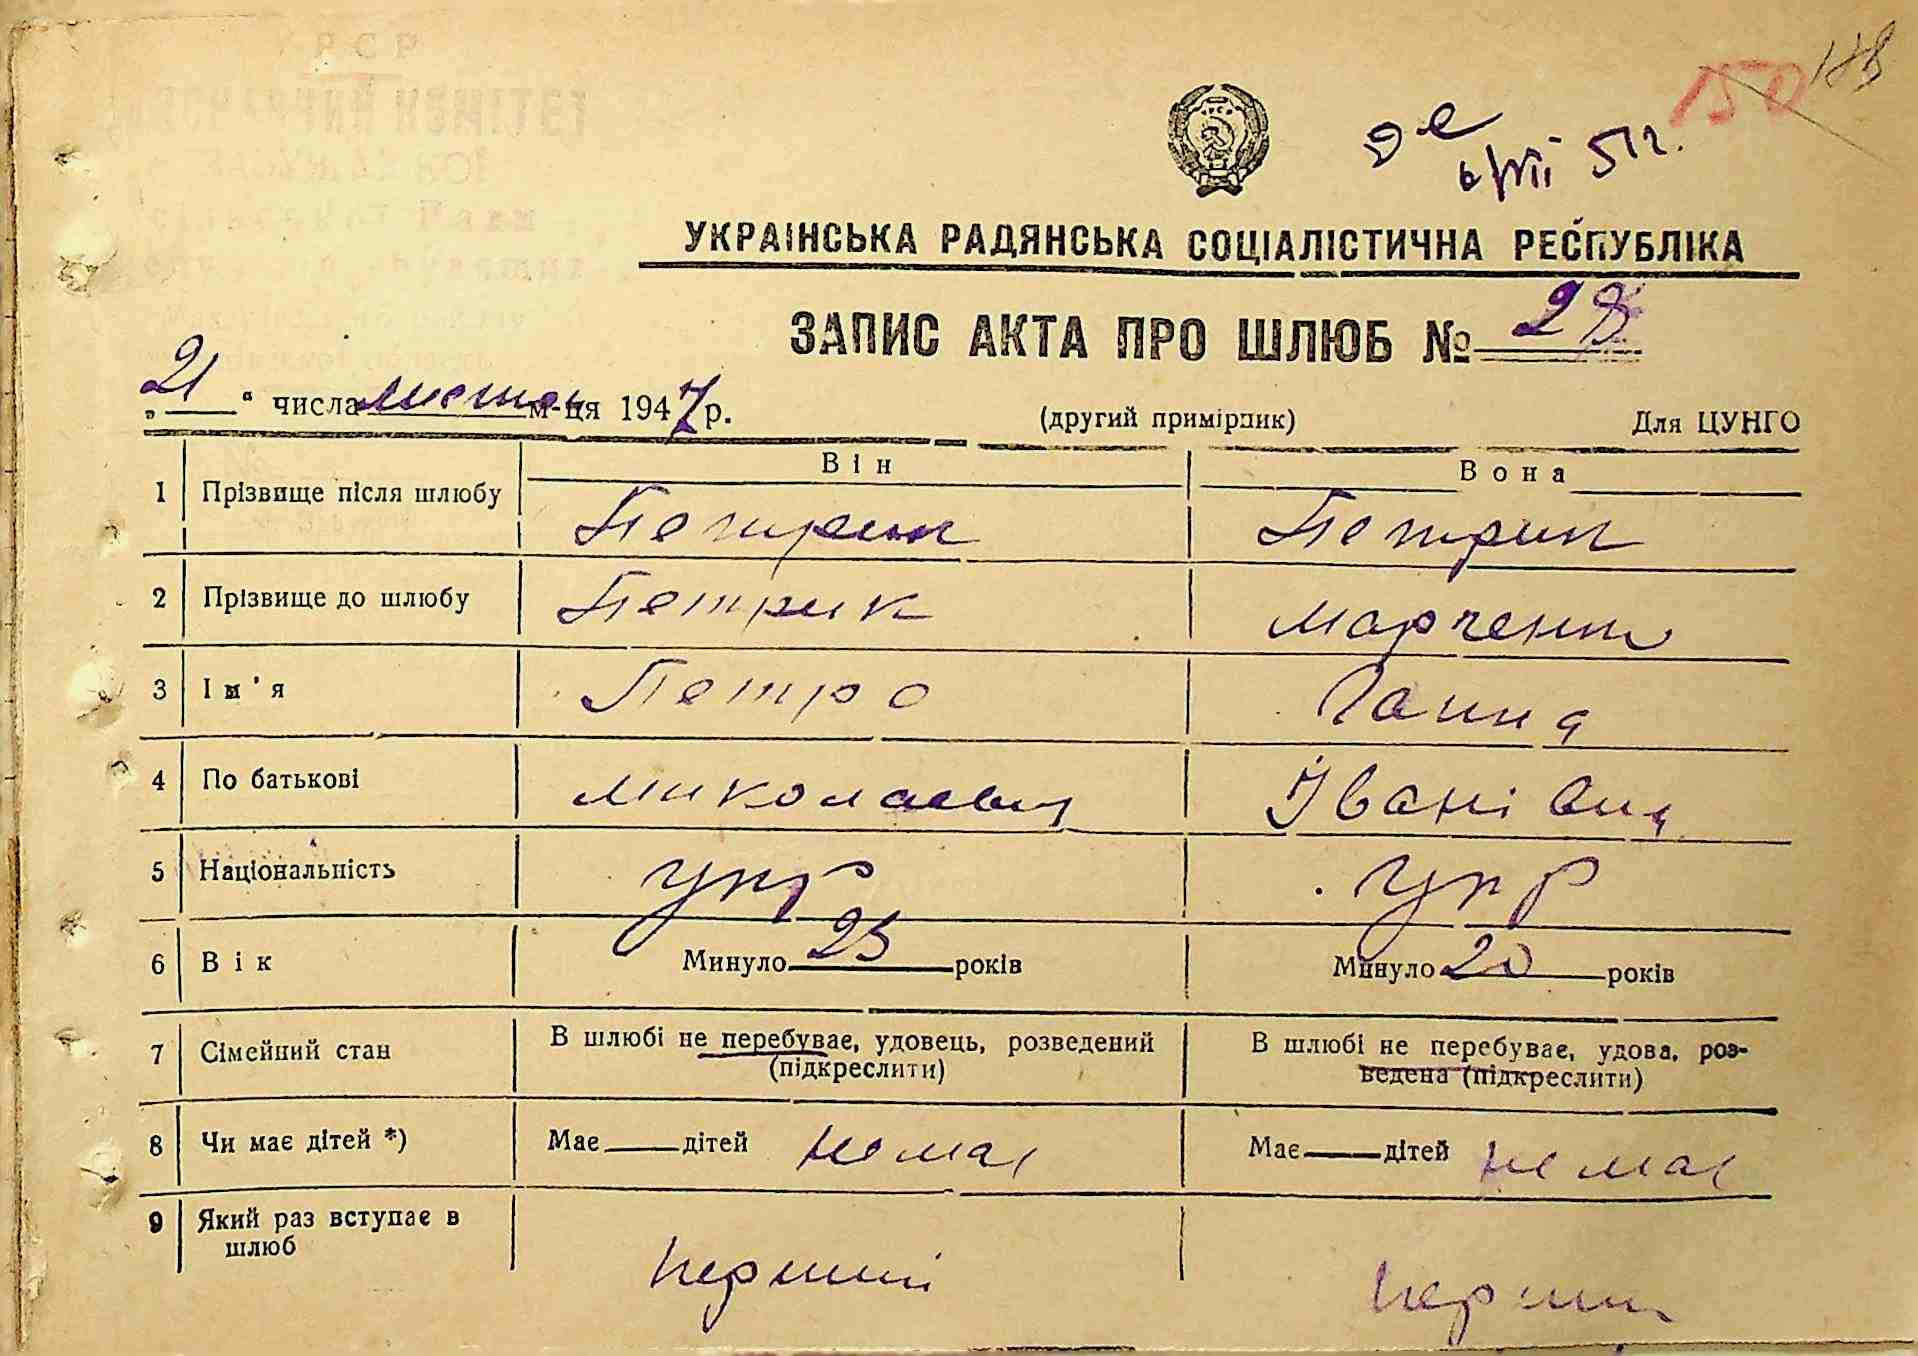 188
150
6/VII 51г.
УКРАІНСЬКА РАДЯНСЬКА СОЦІАЛІСТИЧНА РЕСПУБЛІКА
ЗАПИС АКТА ПРО ШЛЮБ № 28
„21“ числа листоп м-ця 1947 р. (другий примірник) Для ЦУНГО
Він Вона
1 Прізвище після шлюбу Петрик Петрик
2 Прізвище до шлюбу Петрик Марченко
3 Ім'я Петро Ганна
4 По батькові Миколаевич Іванівна
5 Національність укр укр
6 Вік Минуло 25 років Минуло 20 років
7 Сімейний стан В шлюбі не перебуває, удовець, розведений (підкреслити) В шлюбі не перебуває, удова, роз-
ведена (підкреслити)
8 Чи має дітей *) Має дітей немає Має дітей немає
9 Який раз вступає в
шлюб
перший перший